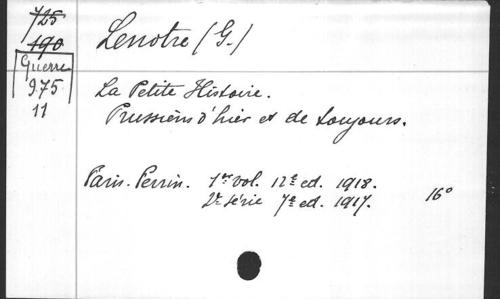 725
190
Guerre
975
11
Lenotre (G.)
La Petite Histoire.
Prussiens d'hier et de toujours.
Paris. Perrin. 1er vol. 12e ed. 1918.
2e série 7e ed. 1917. 16°